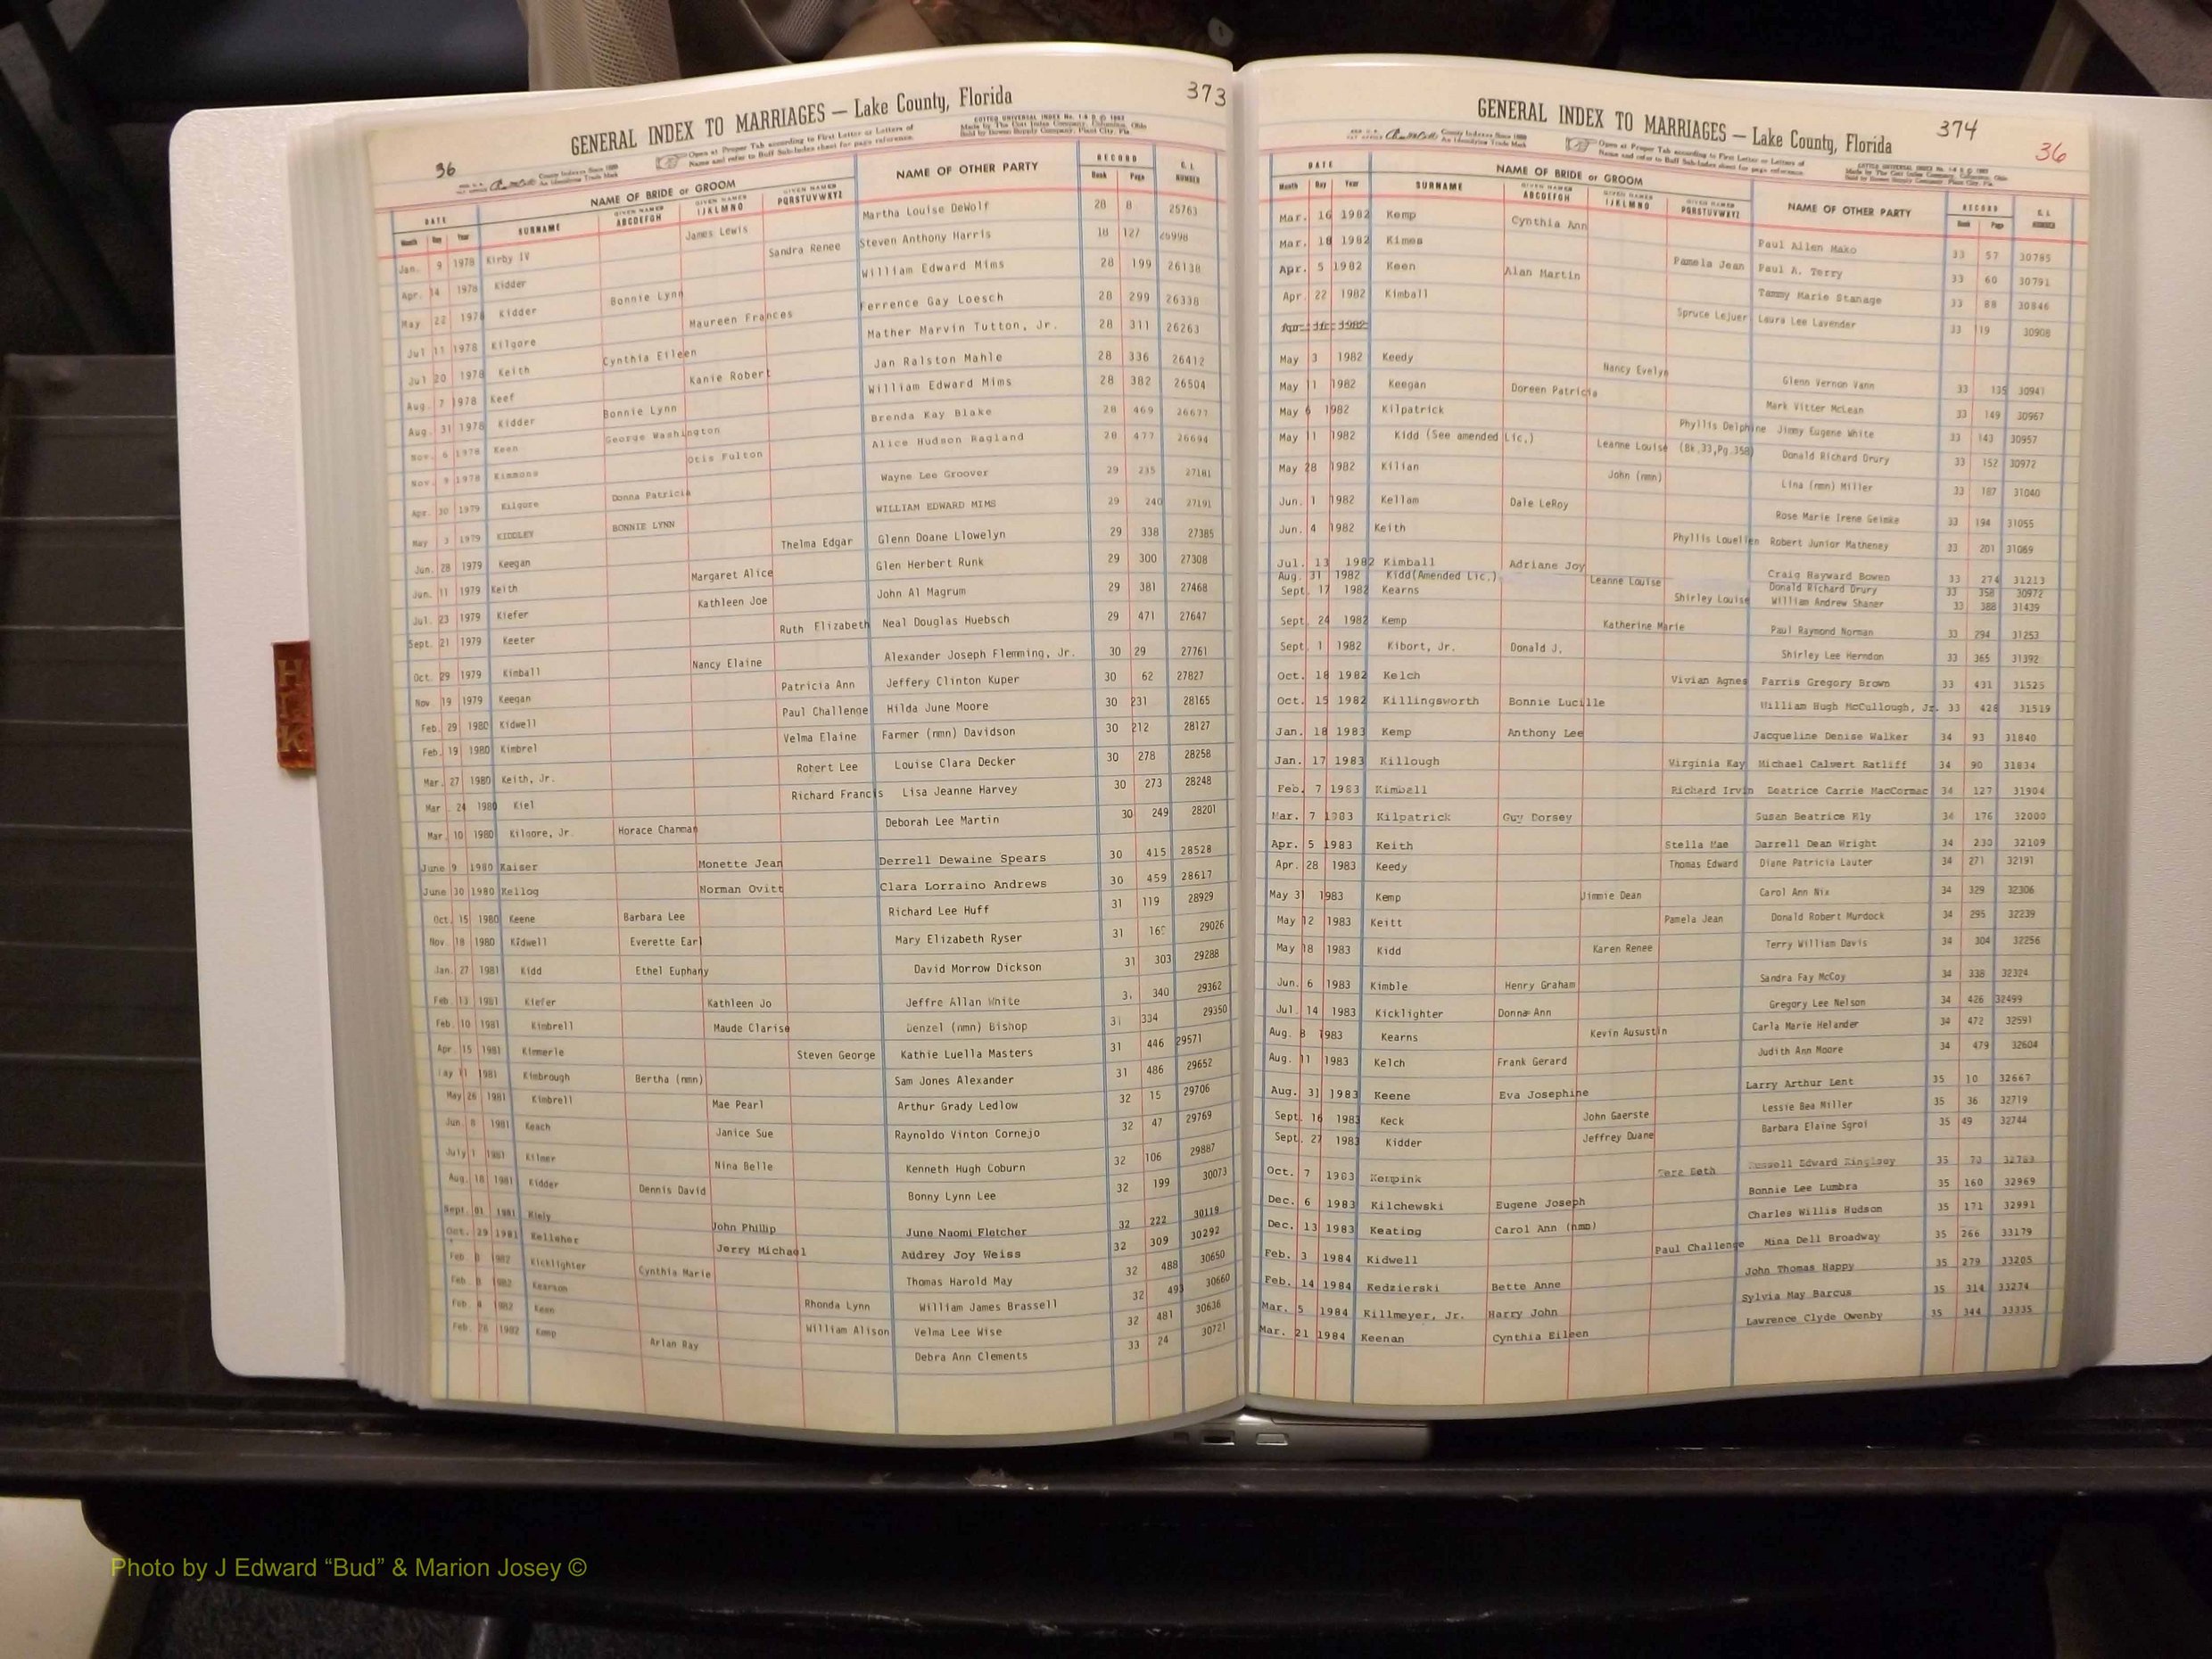 373
GENERAL INDEX TO MARRIAGES — Lake County, Florida
36
County Indexes Since 1888
An Identifying Trade Mark
Open at Proper Tab according to First Letter or Letters of
Name and refer to Buff Sub-Index sheet for page reference.
DATE NAME OF BRIDE or GROOM NAME OF OTHER PARTY RECORD
Month Day Year SURNAME GIVEN NAMES ABCDEFGH GIVEN NAMES IJKLMNO GIVEN NAMES PQRSTUVWXYZ Book Page NUMBER
Jan. 9 1978 Kirby IV James Lewis Martha Louise DeWolf 28 8 25763
Apr. 14 1978 Kidder Sandra Renee Steven Anthony Harris 18 127
May 22 1978 Kidder Bonnie Lynn William Edward Mims 28 199 26138
Jul 11 1978 Kilgore Maureen Frances Ferrence Gay Loesch 28 299 26338
Jul 20 1978 Keith Cynthia Eileen Mather Marvin Tutton, Jr. 28 311 26263
Aug. 7 1978 Keef Kanie Robert Jan Ralston Mahle 28 336 26412
Aug. 31 1978 Kidder Bonnie Lynn William Edward Mims 28 382 26504
Nov. 6 1978 Keen George Washington Brenda Kay Blake 28 469 26677
Nov. 9 1978 Kimmons Otis Fulton Alice Hudson Ragland 28 477 26694
Apr. 30 1979 Kilgore Donna Patricia Wayne Lee Groover 29 235 27181
May 3 1979 KIDDLEY BONNIE LYNN WILLIAM EDWARD MIMS 29 240 27191
Jun. 28 1979 Keegan Thelma Edgar Glenn Doane Llowelyn 29 338 27385
Jun. 11 1979 Keith Margaret Alice Glen Herbert Runk 29 300 27308
Jul. 23 1979 Kiefer Kathleen Joe John Al Magrum 29 381 27468
Sept. 21 1979 Keeter Ruth Elizabeth Neal Douglas Huebsch 29 471 27647
Oct. 29 1979 Kimball Nancy Elaine Alexander Joseph Flemming, Jr. 30 29 27761
Nov. 19 1979 Keegan Patricia Ann Jeffery Clinton Kuper 30 62 27827
Feb. 29 1980 Kidwell Paul Challenge Hilda June Moore 30 231 28165
Feb. 19 1980 Kimbrel Velma Elaine Farmer (nmn) Davidson 30 212 28127
Mar. 27 1980 Keith, Jr. Robert Lee Louise Clara Decker 30 278 28258
Mar. 24 1980 Kiel Richard Francis Lisa Jeanne Harvey 30 273 28248
Mar. 10 1980 Kilgore, Jr. Horace Chanman Deborah Lee Martin 30 249 28201
June 9 1980 Kaiser Monette Jean Derrell Dewaine Spears 30 415 28528
June 30 1980 Kellog Norman Ovitt Clara Lorraino Andrews 30 459 28617
Oct. 15 1980 Keene Barbara Lee Richard Lee Huff 31 119 28929
Nov. 18 1980 Kidwell Everette Earl Mary Elizabeth Ryser 31 29026
Jan. 27 1981 Kidd Ethel Euphany David Morrow Dickson 31 303 29288
Feb. 13 1981 Kiefer Kathleen Jo Jeffre Allan White 340 29362
Feb. 10 1981 Kimbrell Maude Clarise Denzel (nmn) Bishop 31 334 29350
Apr. 15 1981 Kimmerle Steven George Kathie Luella Masters 31 446 29571
1981 Kimbrough Bertha (nmn) Sam Jones Alexander 31 486 29652
May 26 1981 Kimbrell Mae Pearl Arthur Grady Ledlow 32 15 29706
Jun. 8 1981 Keach Janice Sue Raynoldo Vinton Cornejo 32 47 29769
July 1 1981 Kilmer Nina Belle Kenneth Hugh Coburn 32 106 29887
Aug. 18 1981 Kidder Dennis David Bonny Lynn Lee 32 199 30073
Sept. 01 1981 Kiely John Phillip June Naomi Fletcher 32 222 30119
Oct. 29 1981 Kelleher Jerry Michael Audrey Joy Weiss 32 309 30292
Feb. 8 1982 Kicklighter Cynthia Marie Thomas Harold May 32 488 30650
Feb. 8 1982 Kearson Rhonda Lynn William James Brassell 32 493 30660
Feb. 4 1982 Keen William Alison Velma Lee Wise 32 481 30636
Feb. 26 1982 Kemp Arlan Ray Debra Ann Clements 33 24 30721
374
36
GENERAL INDEX TO MARRIAGES — Lake County, Florida
County Indexes Since 1888
An Identifying Trade Mark
Open at Proper Tab according to First Letter or Letters of
Name and refer to Buff Sub-Index sheet for page reference.
DATE NAME OF BRIDE or GROOM NAME OF OTHER PARTY RECORD
Month Day Year SURNAME GIVEN NAMES ABCDEFGH GIVEN NAMES IJKLMNO GIVEN NAMES PQRSTUVWXYZ Book Page NUMBER
Mar. 16 1982 Kemp Cynthia Ann Paul Allen Mako 33 57 30785
Mar. 18 1982 Kimes Pamela Jean Paul A. Terry 33 60 30791
Apr. 5 1982 Keen Alan Martin Tammy Marie Stanage 33 88 30846
Apr. 22 1982 Kimball Spruce Lejuer Laura Lee Lavender 33 119 30908
May 3 1982 Keedy Nancy Evelyn Glenn Vernon Vann 33 135 30941
May 11 1982 Keegan Doreen Patricia Mark Vitter McLean 33 149 30967
May 6 1982 Kilpatrick Phyllis Delphine Jimmy Eugene White 33 143 30957
May 11 1982 Kidd (See amended Lic.) Leanne Louise (Bk.33,Pg.358) Donald Richard Drury 33 152 30972
May 28 1982 Kilian John (nmn) Lina (nmn) Miller 33 187 31040
Jun. 1 1982 Kellam Dale LeRoy Rose Marie Irene Geimke 33 194 31055
Jun. 4 1982 Keith Phyllis Louellen Robert Junior Matheney 33 201 31069
Jul. 13 1982 Kimball Adriane Joy Craig Hayward Bowen 33 274 31213
Aug. 31 1982 Kidd(Amended Lic.) Leanne Louise Donald Richard Drury 33 358 30972
Sept. 17 1982 Kearns Shirley Louise William Andrew Shaner 33 388 31439
Sept. 24 1982 Kemp Katherine Marie Paul Raymond Norman 33 294 31253
Sept. 1 1982 Kibort, Jr. Donald J. Shirley Lee Herndon 33 365 31392
Oct. 18 1982 Kelch Vivian Agnes Farris Gregory Brown 33 431 31525
Oct. 15 1982 Killingsworth Bonnie Lucille William Hugh McCullough, Jr. 33 428 31519
Jan. 18 1983 Kemp Anthony Lee Jacqueline Denise Walker 34 93 31840
Jan. 17 1983 Killough Virginia Kay Michael Calvert Ratliff 34 90 31834
Feb. 7 1983 Kimbell Richard Irvin Beatrice Carrie MacCormac 34 127 31904
Mar. 7 1983 Kilpatrick Guy Dorsey Susan Beatrice Ely 34 176 32000
Apr. 5 1983 Keith Stella Mae Darrell Dean Wright 34 230 32109
Apr. 28 1983 Keedy Thomas Edward Diane Patricia Lauter 34 271 32191
May 31 1983 Kemp Jimmie Dean Carol Ann Nix 34 329 32306
May 12 1983 Keitt Pamela Jean Donald Robert Murdock 34 295 32239
May 18 1983 Kidd Karen Renee Terry William Davis 34 304 32256
Jun. 6 1983 Kimble Henry Graham Sandra Fay McCoy 34 338 32324
Jul. 14 1983 Kicklighter Donna Ann Gregory Lee Nelson 34 426 32499
Aug. 8 1983 Kearns Kevin Ausustin Carla Marie Helander 34 472 32591
Aug. 11 1983 Kelch Frank Gerard Judith Ann Moore 34 479 32604
Aug. 31 1983 Keene Eva Josephine Larry Arthur Lent 35 10 32667
Sept. 16 1983 Keck John Gaerste Lessie Bea Miller 35 36 32719
Sept. 27 1983 Kidder Jeffrey Duane Barbara Elaine Sgroi 35 49 32744
Oct. 7 1983 Kempink Beth Russell Edward Kinglsey 35 73 32793
Dec. 6 1983 Kilchewski Eugene Joseph Bonnie Lee Lumbra 35 160 32969
Dec. 13 1983 Keating Carol Ann (nmn) Charles Willis Hudson 35 171 32991
Feb. 3 1984 Kidwell Paul Challenge Mina Dell Broadway 35 266 33179
Feb. 14 1984 Kedzierski Bette Anne John Thomas Happy 35 279 33205
Mar. 5 1984 Killmeyer, Jr. Harry John Sylvia May Barcus 35 314 33274
Mar. 21 1984 Keenan Cynthia Eileen Lawrence Clyde Owenby 35 344 33335
H
K
Photo by J Edward “Bud” & Marion Josey ©